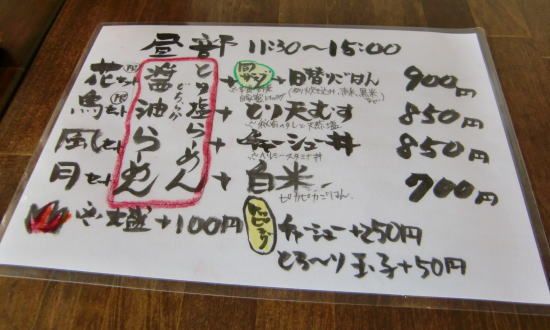 昼の部 11:30～15:00
花セット 限 醤油らーめん どちらか とり塩らーめん + 日替りごはん 900円
鳥セット 限 + とり天むす 850円
風セット + チャーシュー丼 850円
月セット + 白米 700円
ピカピカごはん。
大盛+100円
トッピング チャーシュー+250円
とろ～り玉子+50円